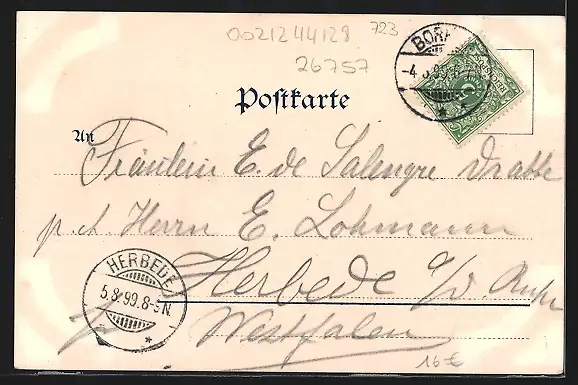 0021244128
723
26757
Postkarte
An
Fräulein E. de Salengre Drabbe
p. ad. Herrn E. Lohmann
Herbede a/d. Ruhr
Westfalen
HERBEDE
5.8.99.8-9N.
16 €